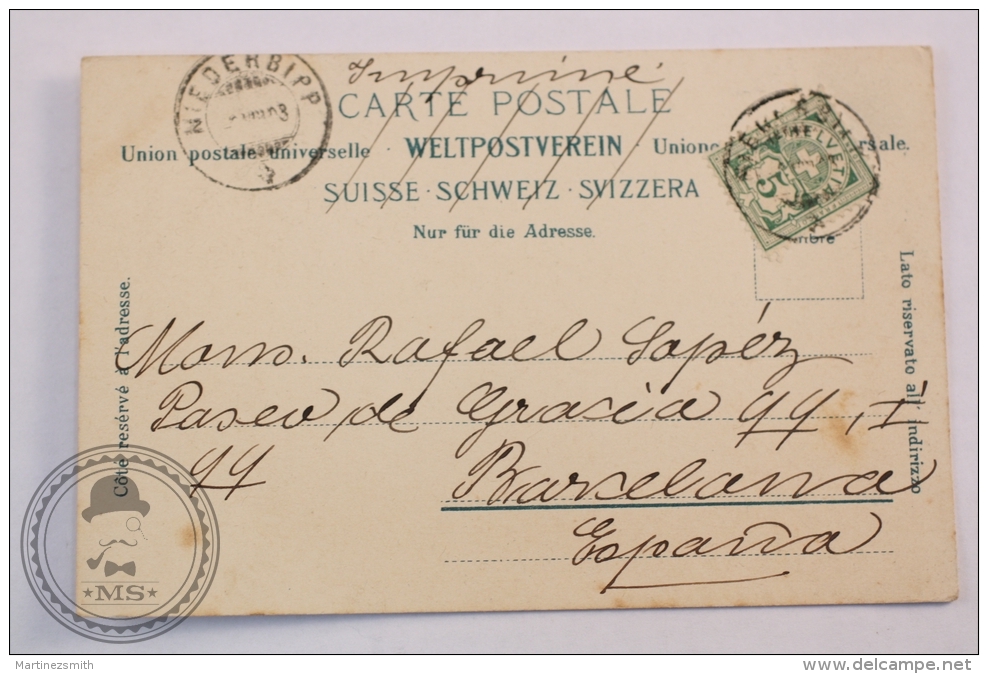 NIEDERBIPP
Imprimé
CARTE POSTALE
Union postale universelle · WELTPOSTVEREIN · Unione rsale.
SUISSE · SCHWEIZ · SVIZZERA
Nur für die Adresse.
HELVETIA
5
mbre
Côté réservé à l'adresse.
Lato riservato all' indirizzo
Mons. Rafael Lopéz
Paseo de Gracia 99, I
99 Barcelona
España
MS
Martinezsmith
www.delcampe.net